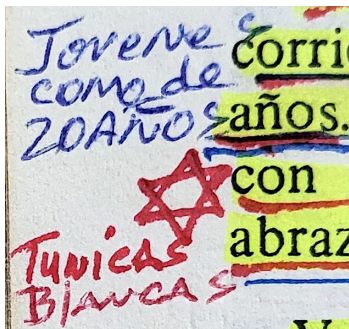 Jovenes
como de
20 AÑOS
TUNICAS
BLANCAS
corri
años.
con
abraz